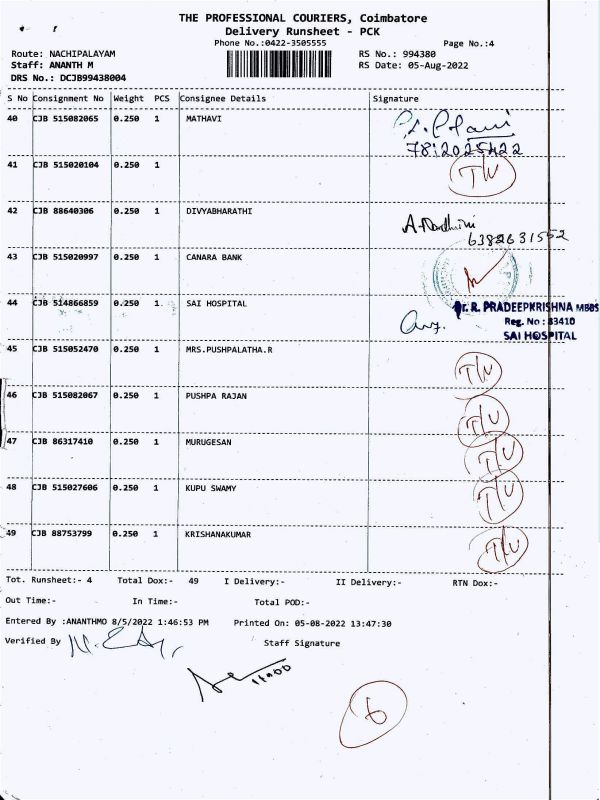 THE PROFESSIONAL COURIERS, Coimbatore
Delivery Runsheet - PCK
Phone No.:0422-3505555
Page No.:4
Route: NACHIPALAYAM
RS No.: 994380
Staff: ANANTH M
RS Date: 05-Aug-2022
DRS No.: DCJB99438004
S No Consignment No Weight PCS Consignee Details Signature
40 CJB 515082065 0.250 1 MATHAVI
41 CJB 515020104 0.250 1
42 CJB 88640306 0.250 1 DIVYABHARATHI
6382631552
43 CJB 515020997 0.250 1 CANARA BANK
44 CJB 514866859 0.250 1 SAI HOSPITAL
Dr. R. PRADEEPKRISHNA MBBS
Reg. No : 83410
SAI HOSPITAL
45 CJB 515052470 0.250 1 MRS.PUSHPALATHA.R
46 CJB 515082067 0.250 1 PUSHPA RAJAN
47 CJB 86317410 0.250 1 MURUGESAN
48 CJB 515027606 0.250 1 KUPU SWAMY
49 CJB 88753799 0.250 1 KRISHANAKUMAR
Tot. Runsheet:- 4 Total Dox:- 49 I Delivery:- II Delivery:- RTN Dox:-
Out Time:- In Time:- Total POD:-
Entered By :ANANTHMO 8/5/2022 1:46:53 PM Printed On: 05-08-2022 13:47:30
Verified By
Staff Signature
6